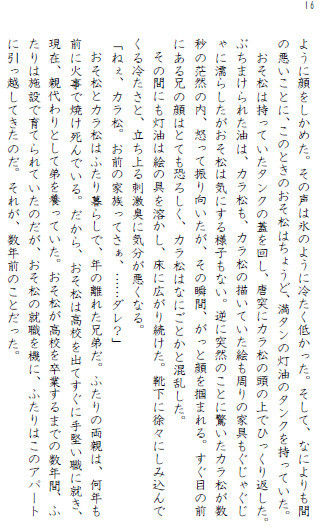 16
ように顔をしかめた。その声は氷のように冷たく低かった。そして、なによりも間
の悪いことに、このときのおそ松はちょうど、満タンの灯油のタンクを持っていた。
おそ松は持っていたタンクの蓋を回し、唐突にカラ松の頭の上でひっくり返した。
ぶちまけられた油は、カラ松も、カラ松の描いていた絵も周りの家具もぐじゃぐじ
ゃに濡らしたがおそ松は気にする様子もない。逆に突然のことに驚いたカラ松が数
秒の茫然の内、怒って振り向いたが、その瞬間、がっと顔を掴まれる。すぐ目の前
にある兄の顔はとても恐ろしく、カラ松はなにごとかと混乱した。
その間にも灯油は絵の具を溶かし、床に広がり続けた。靴下に徐々にしみ込んで
くる冷たさと、立ち上る刺激臭に気分が悪くなる。
「ねぇ、カラ松。お前の家族ってさぁ、……ダレ？」
おそ松とカラ松はふたり暮らしで、年の離れた兄弟だ。ふたりの両親は、何年も
前に火事で焼け死んでいる。だから、おそ松は高校を出てすぐに手堅い職に就き、
現在、親代わりとして弟を養っていた。おそ松が高校を卒業するまでの数年間、ふ
たりは施設で育てられていたのだが、おそ松の就職を機に、ふたりはこのアパート
に引っ越してきたのだ。それが、数年前のことだった。